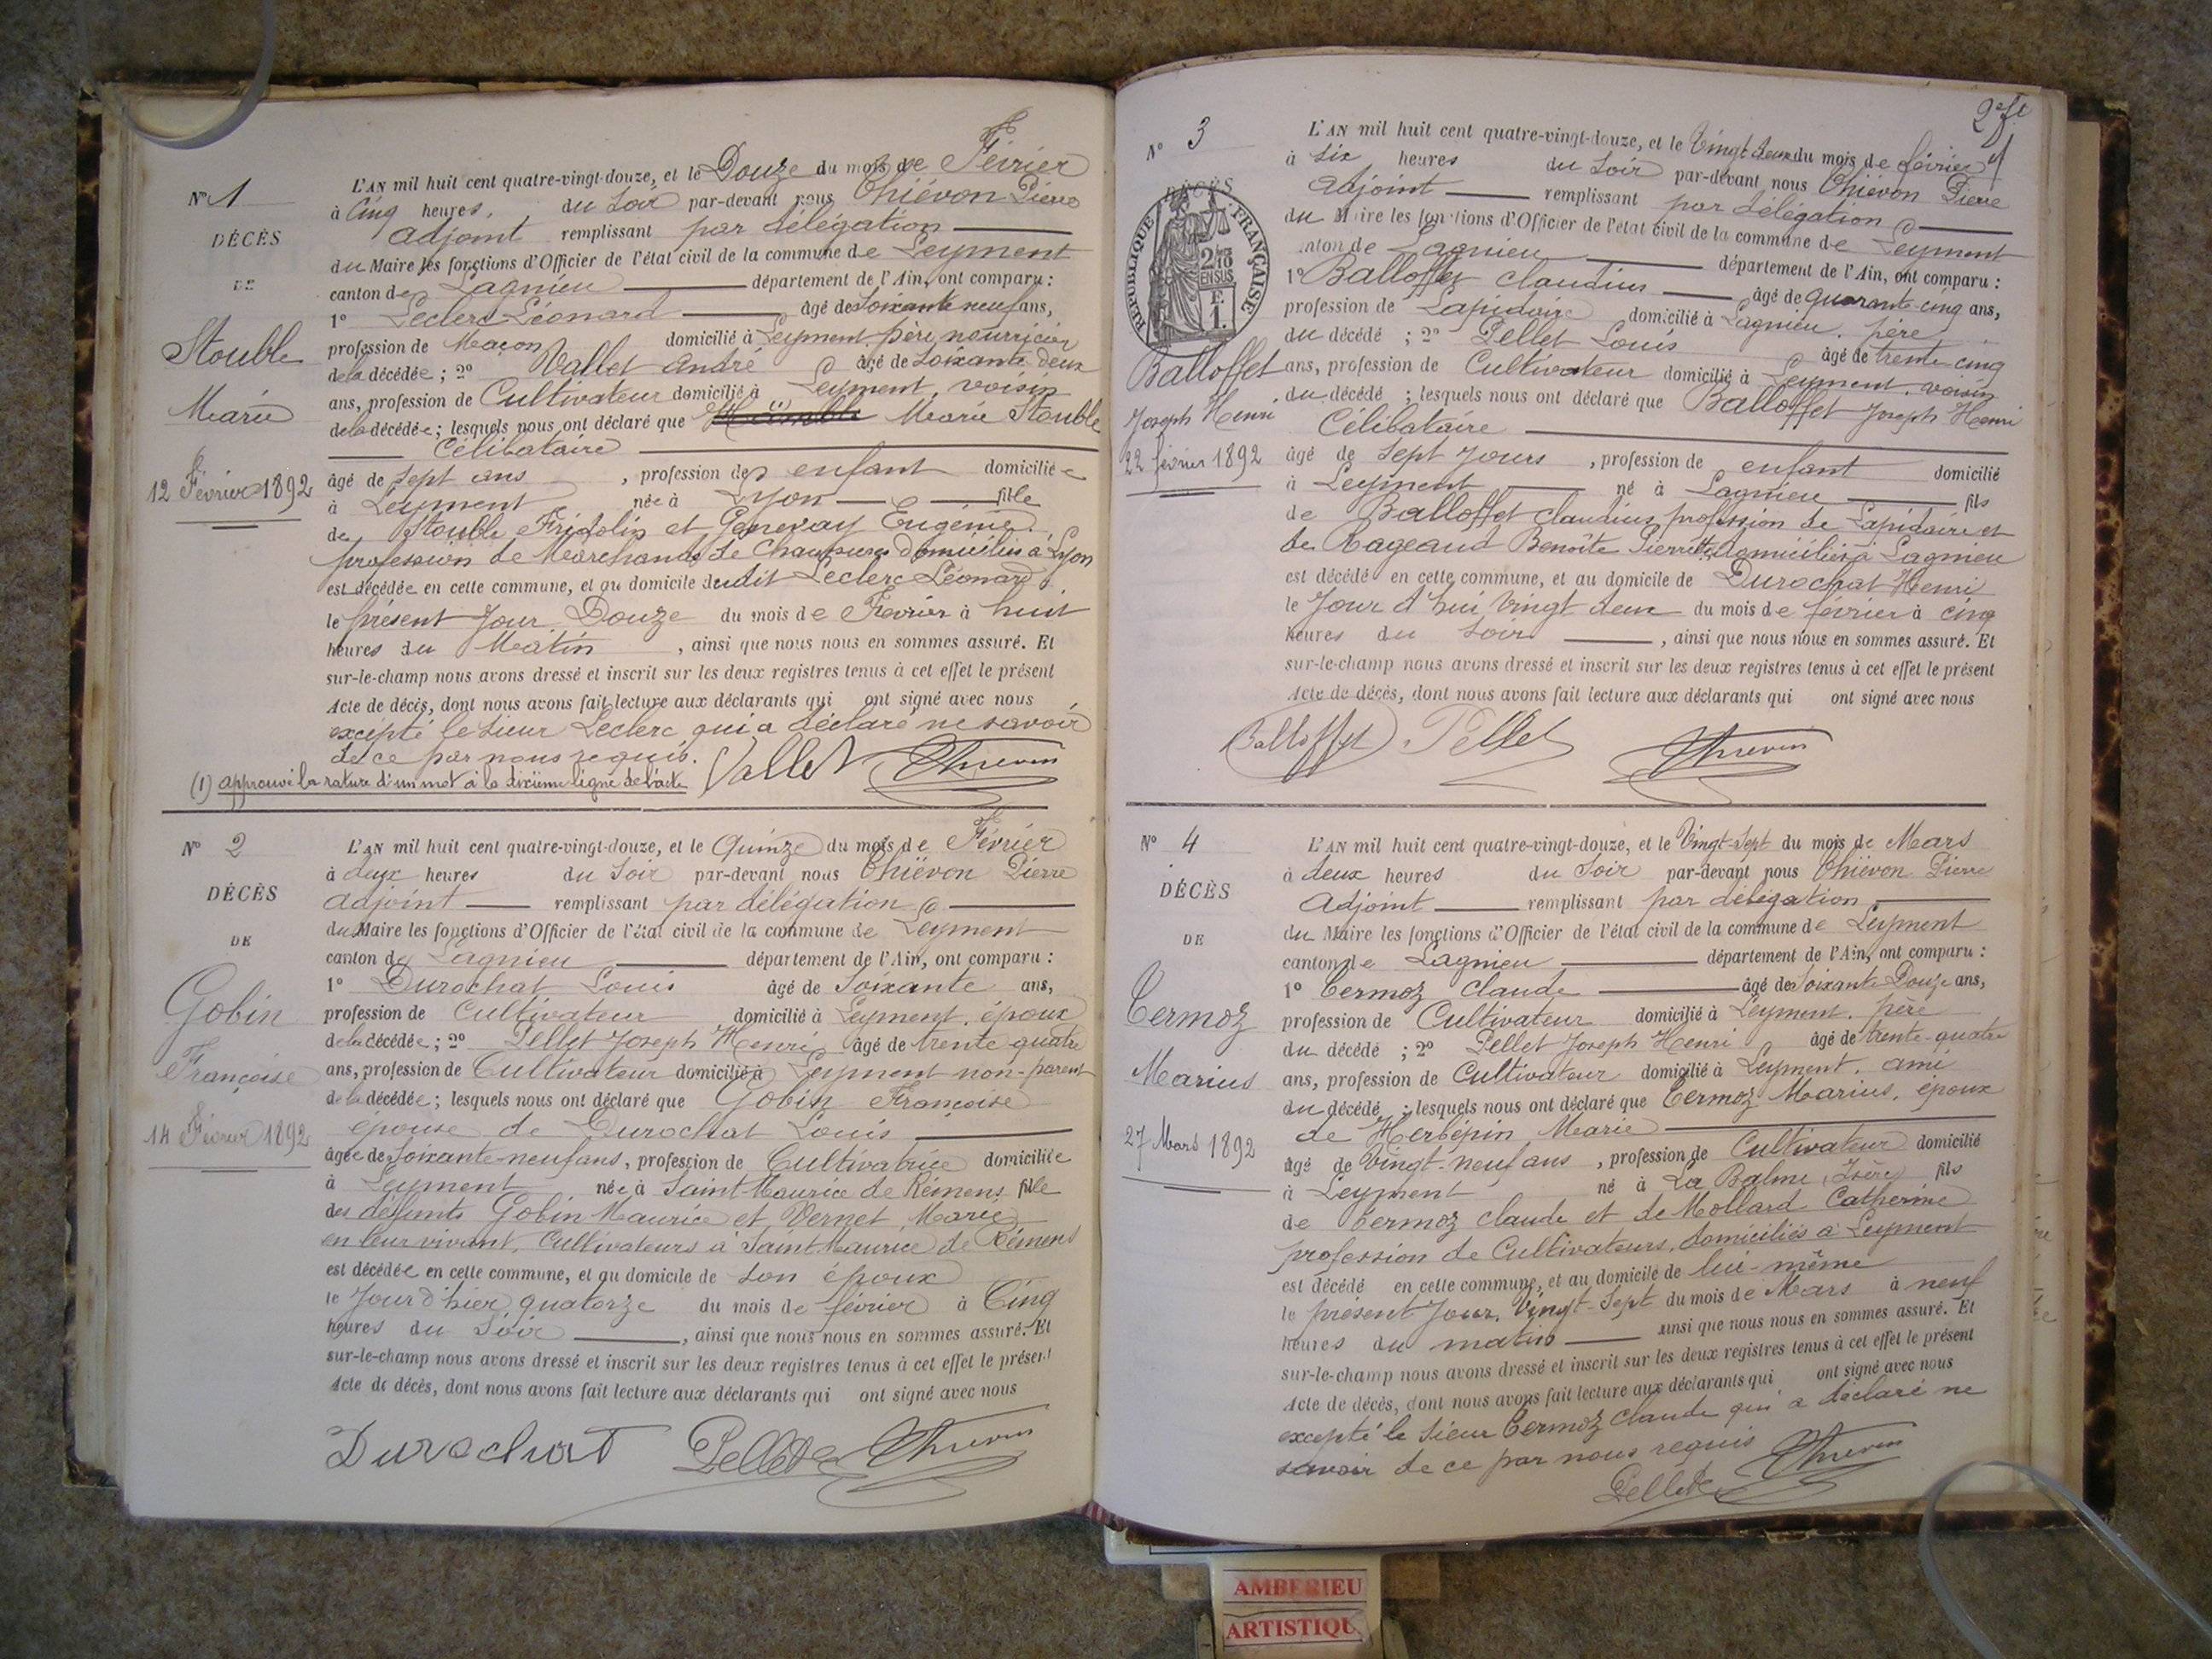 N° 1
DÉCÈS
DE
Stouble
Marie
12 Février 1892
L'AN mil huit cent quatre-vingt-douze, et le Douze du mois de Février
à Cinq heures, du Soir par-devant nous Thiévon Pierre
adjoint remplissant par délégation
du Maire les fonctions d'Officier de l'état civil de la commune de Leyment
canton de Lagnieu département de l'Ain, ont comparu :
1° Leclerc Léonard âgé de Soixante neuf ans,
profession de Maçon domicilié à Leyment, père nourricier
de la décédée ; 2° Vallet André âgé de Soixante deux
ans, profession de Cultivateur domicilié à Leyment, voisin
de la décédée ; lesquels nous ont déclaré que Marie Stouble
Célibataire
âgé de Sept ans , profession de enfant domiciliée
à Leyment née à Lyon fille
de Stouble Fridolin et Genevay Eugénie
profession de Marchands de Chaussures domiciliés à Lyon
est décédée en cette commune, et au domicile dudit Leclerc Léonard
le présent jour Douze du mois de Février à huit
heures du Matin , ainsi que nous nous en sommes assuré. Et
sur-le-champ nous avons dressé et inscrit sur les deux registres tenus à cet effet le présent
Acte de décès, dont nous avons fait lecture aux déclarants qui ont signé avec nous
excepté le Sieur Leclerc qui a déclaré ne savoir
de ce par nous requis. Vallet Thievon
(1) approuvé la rature d'un mot à la dixième ligne de l'acte
N° 2
DÉCÈS
DE
Gobin
Françoise
14 Février 1892
L'AN mil huit cent quatre-vingt-douze, et le Quinze du mois de Février
à deux heures du Soir par-devant nous Thiévon Pierre
adjoint remplissant par délégation
du Maire les fonctions d'Officier de l'état civil de la commune de Leyment
canton de Lagnieu département de l'Ain, ont comparu :
1° Durochat Louis âgé de Soixante ans,
profession de Cultivateur domicilié à Leyment, époux
de la décédée ; 2° Pellet Joseph Henri âgé de trente quatre
ans, profession de Cultivateur domicilié à Leyment non-parent
de la décédée ; lesquels nous ont déclaré que Gobin Françoise
épouse de Durochat Louis
âgée de Soixante-neuf ans, profession de Cultivatrice domiciliée
à Leyment née à Saint Maurice de Rémens fille
des défunts Gobin Maurice et Vernet Marie
en leur vivant, Cultivateurs à Saint Maurice de Rémens
est décédée en cette commune, et au domicile de son époux
le jour d'hier quatorze du mois de février à Cinq
heures du Soir , ainsi que nous nous en sommes assuré. Et
sur-le-champ nous avons dressé et inscrit sur les deux registres tenus à cet effet le présent
Acte de décès, dont nous avons fait lecture aux déclarants qui ont signé avec nous
Durochat Pellet Thievon
N° 3
DÉCÈS
RÉPUBLIQUE FRANÇAISE
2/10 EN SUS
F. 1.
Balloffet
Joseph Henri
22 février 1892
L'AN mil huit cent quatre-vingt-douze, et le Vingt deux du mois de février
à six heures du Soir par-devant nous Thiévon Pierre
adjoint remplissant par délégation
du Maire les fonctions d'Officier de l'état civil de la commune de Leyment
canton de Lagnieu département de l'Ain, ont comparu :
1° Balloffet Claudius âgé de quarante-cinq ans,
profession de Lapidaire domicilié à Lagnieu, père
du décédé ; 2° Pellet Louis âgé de trente-cinq
ans, profession de Cultivateur domicilié à Leyment, voisin
du décédé ; lesquels nous ont déclaré que Balloffet Joseph Henri
Célibataire
âgé de Sept jours , profession de enfant domicilié
à Leyment né à Lagnieu fils
de Balloffet Claudius profession de Lapidaire et
de Rageaud Benoîte Pierrette domiciliés à Lagnieu
est décédé en cette commune, et au domicile de Durochat Henri
le Jour d'hui Vingt deux du mois de février à cinq
heures du Soir , ainsi que nous nous en sommes assuré. Et
sur-le-champ nous avons dressé et inscrit sur les deux registres tenus à cet effet le présent
Acte de décès, dont nous avons fait lecture aux déclarants qui ont signé avec nous
Balloffet Pellet Thievon
N° 4
DÉCÈS
DE
Cermoz
Marius
27 Mars 1892
L'AN mil huit cent quatre-vingt-douze, et le Vingt-Sept du mois de Mars
à deux heures du Soir par-devant nous Thiévon Pierre
Adjoint remplissant par délégation
du Maire les fonctions d'Officier de l'état civil de la commune de Leyment
canton de Lagnieu département de l'Ain, ont comparu :
1° Cermoz Claude âgé de Soixante Douze ans,
profession de Cultivateur domicilié à Leyment, père
du décédé ; 2° Pellet Joseph Henri âgé de trente-quatre
ans, profession de Cultivateur domicilié à Leyment, ami
du décédé ; lesquels nous ont déclaré que Cermoz Marius, époux
de Herbépin Marie
âgé de Vingt-neuf ans , profession de Cultivateur domicilié
à Leyment né à La Balme, Isère, fils
de Cermoz Claude et de Mollard Catherine
profession de Cultivateurs, domiciliés à Leyment
est décédé en cette commune, et au domicile de lui-même
le présent jour, Vingt-Sept du mois de Mars à neuf
heures du matin ainsi que nous nous en sommes assuré. Et
sur-le-champ nous avons dressé et inscrit sur les deux registres tenus à cet effet le présent
Acte de décès, dont nous avons fait lecture aux déclarants qui ont signé avec nous
excepté le Sieur Cermoz Claude qui a déclaré ne
savoir de ce par nous requis Thievon
Pellet
AMBERIEU
ARTISTIQU